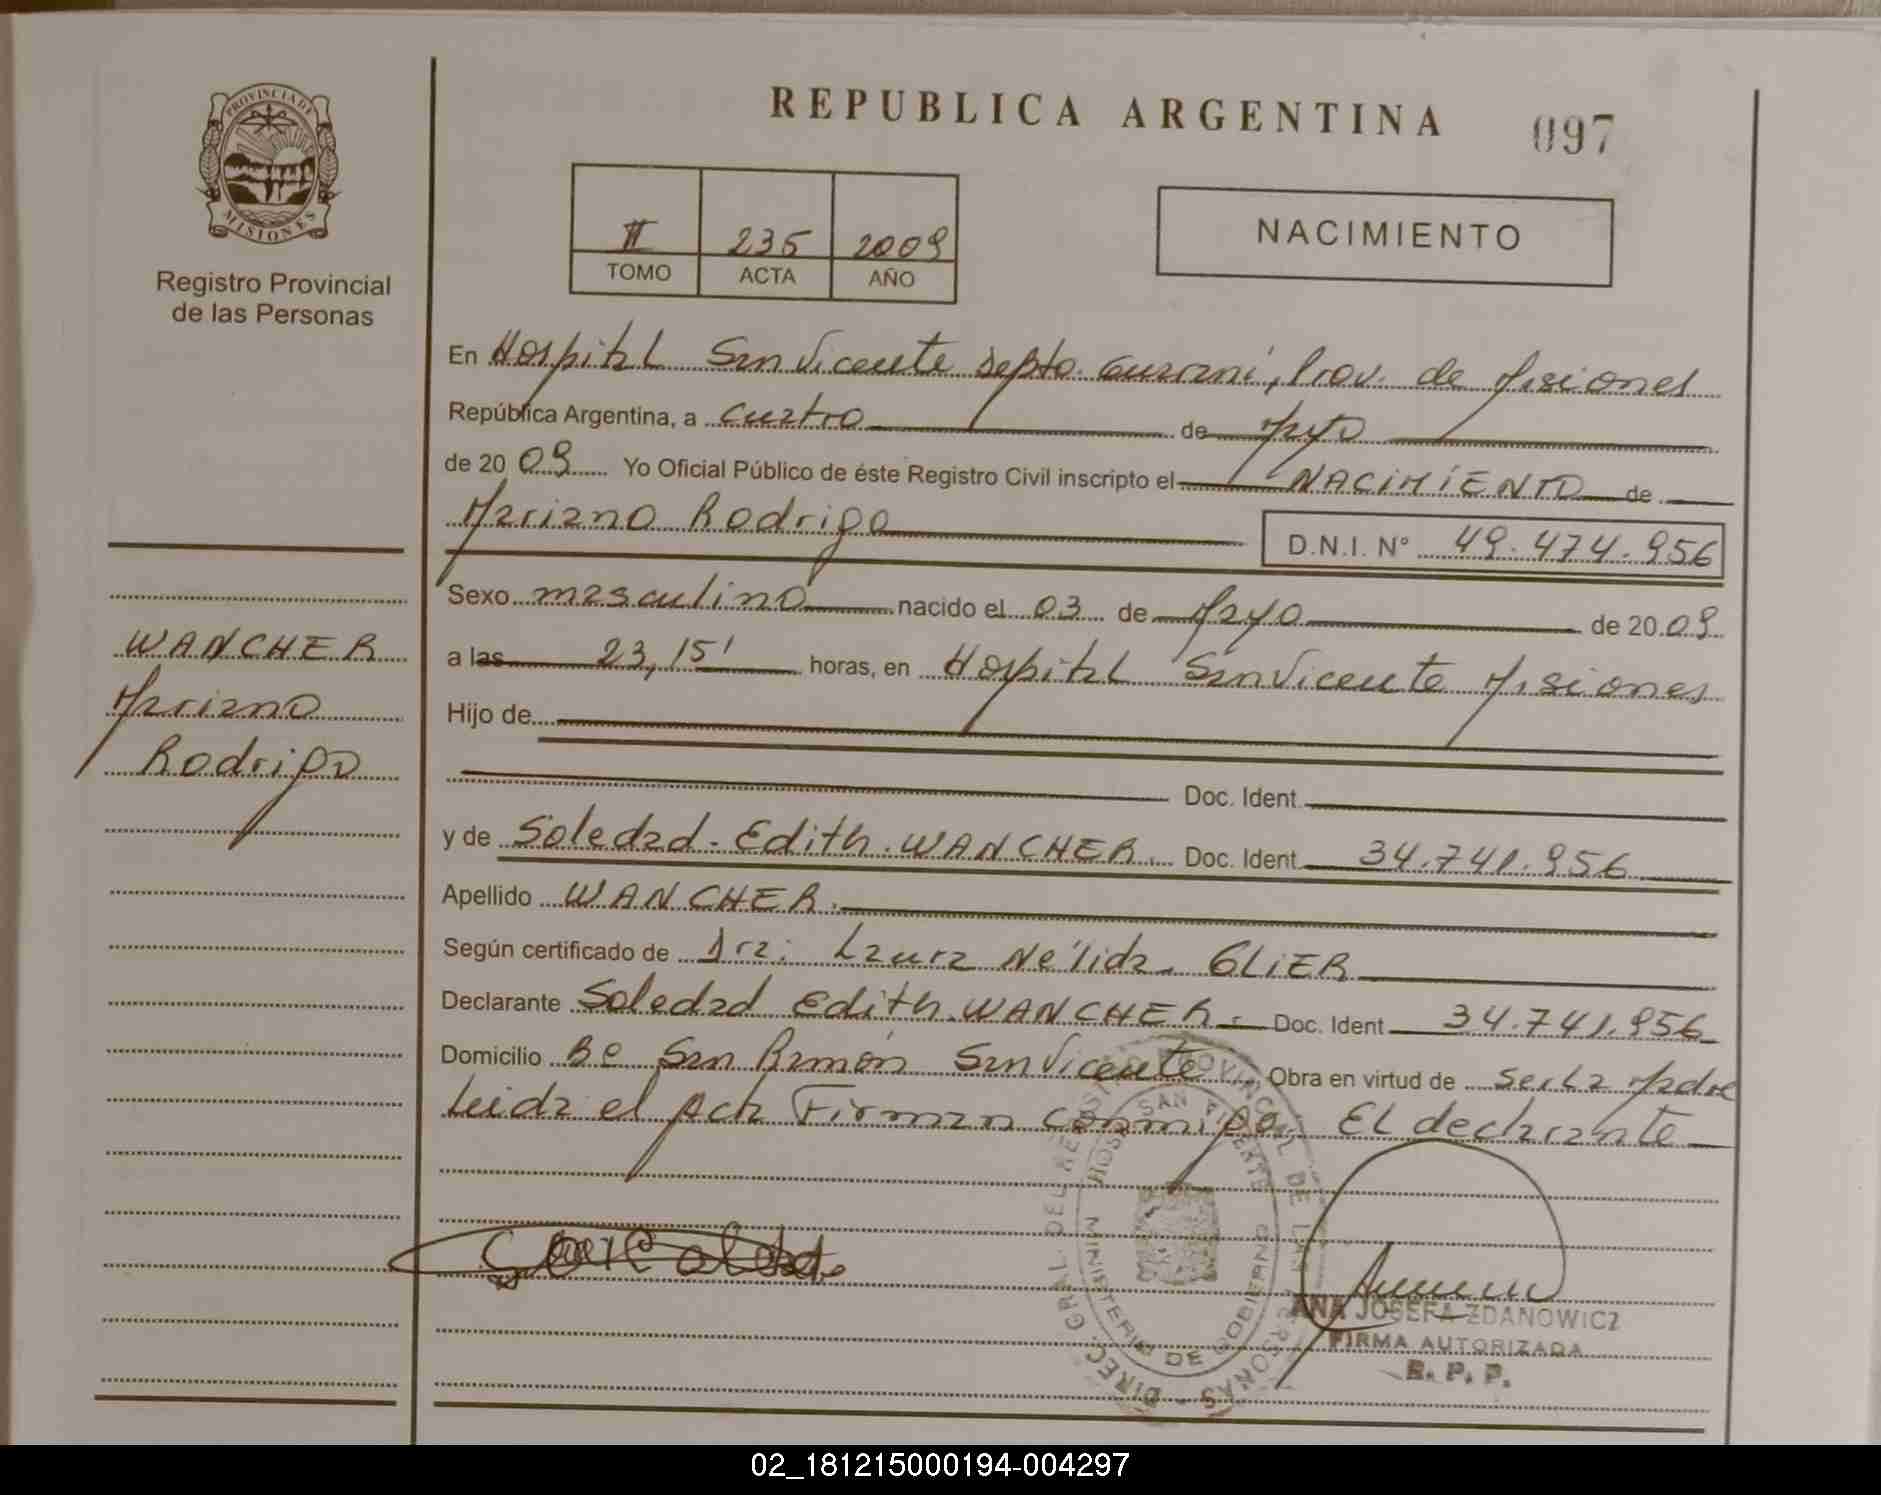 REPUBLICA ARGENTINA
097
PROVINCIA DE
MISIONES
Registro Provincial
de las Personas
II 235 2009
TOMO ACTA AÑO
NACIMIENTO
En Hospital San Vicente Depto. Guarani, Prov. de Misiones
República Argentina, a cuatro de Mayo
de 20 09 Yo Oficial Público de éste Registro Civil inscripto el NACIMIENTO de
Mariano Rodrigo D.N.I. N° 49.474.956
Sexo masculino nacido el 03 de Mayo de 20 09
a las 23,15' horas, en Hospital San Vicente Misiones
Hijo de
Doc. Ident.
y de Soledad Edith WANCHER Doc. Ident. 34.741.956
Apellido WANCHER.
Según certificado de Dra. Laura Nélida GLIER
Declarante Soledad Edith WANCHER. Doc. Ident 34.741.956
Domicilio Bº San Ramón San Vicente Obra en virtud de ser la Madre
Leida el Acta Firman conmigo, El declarante
WANCHER
Mariano
Rodrigo
DIREC. GRAL. DEL REGISTRO PROVINCIAL DE LAS PERSONAS
HOSP. SAN VICENTE
MINISTERIO DE GOBIERNO
ANA JOSEFA ZDANOWICZ
FIRMA AUTORIZADA
R. P. P.
02_181215000194-004297